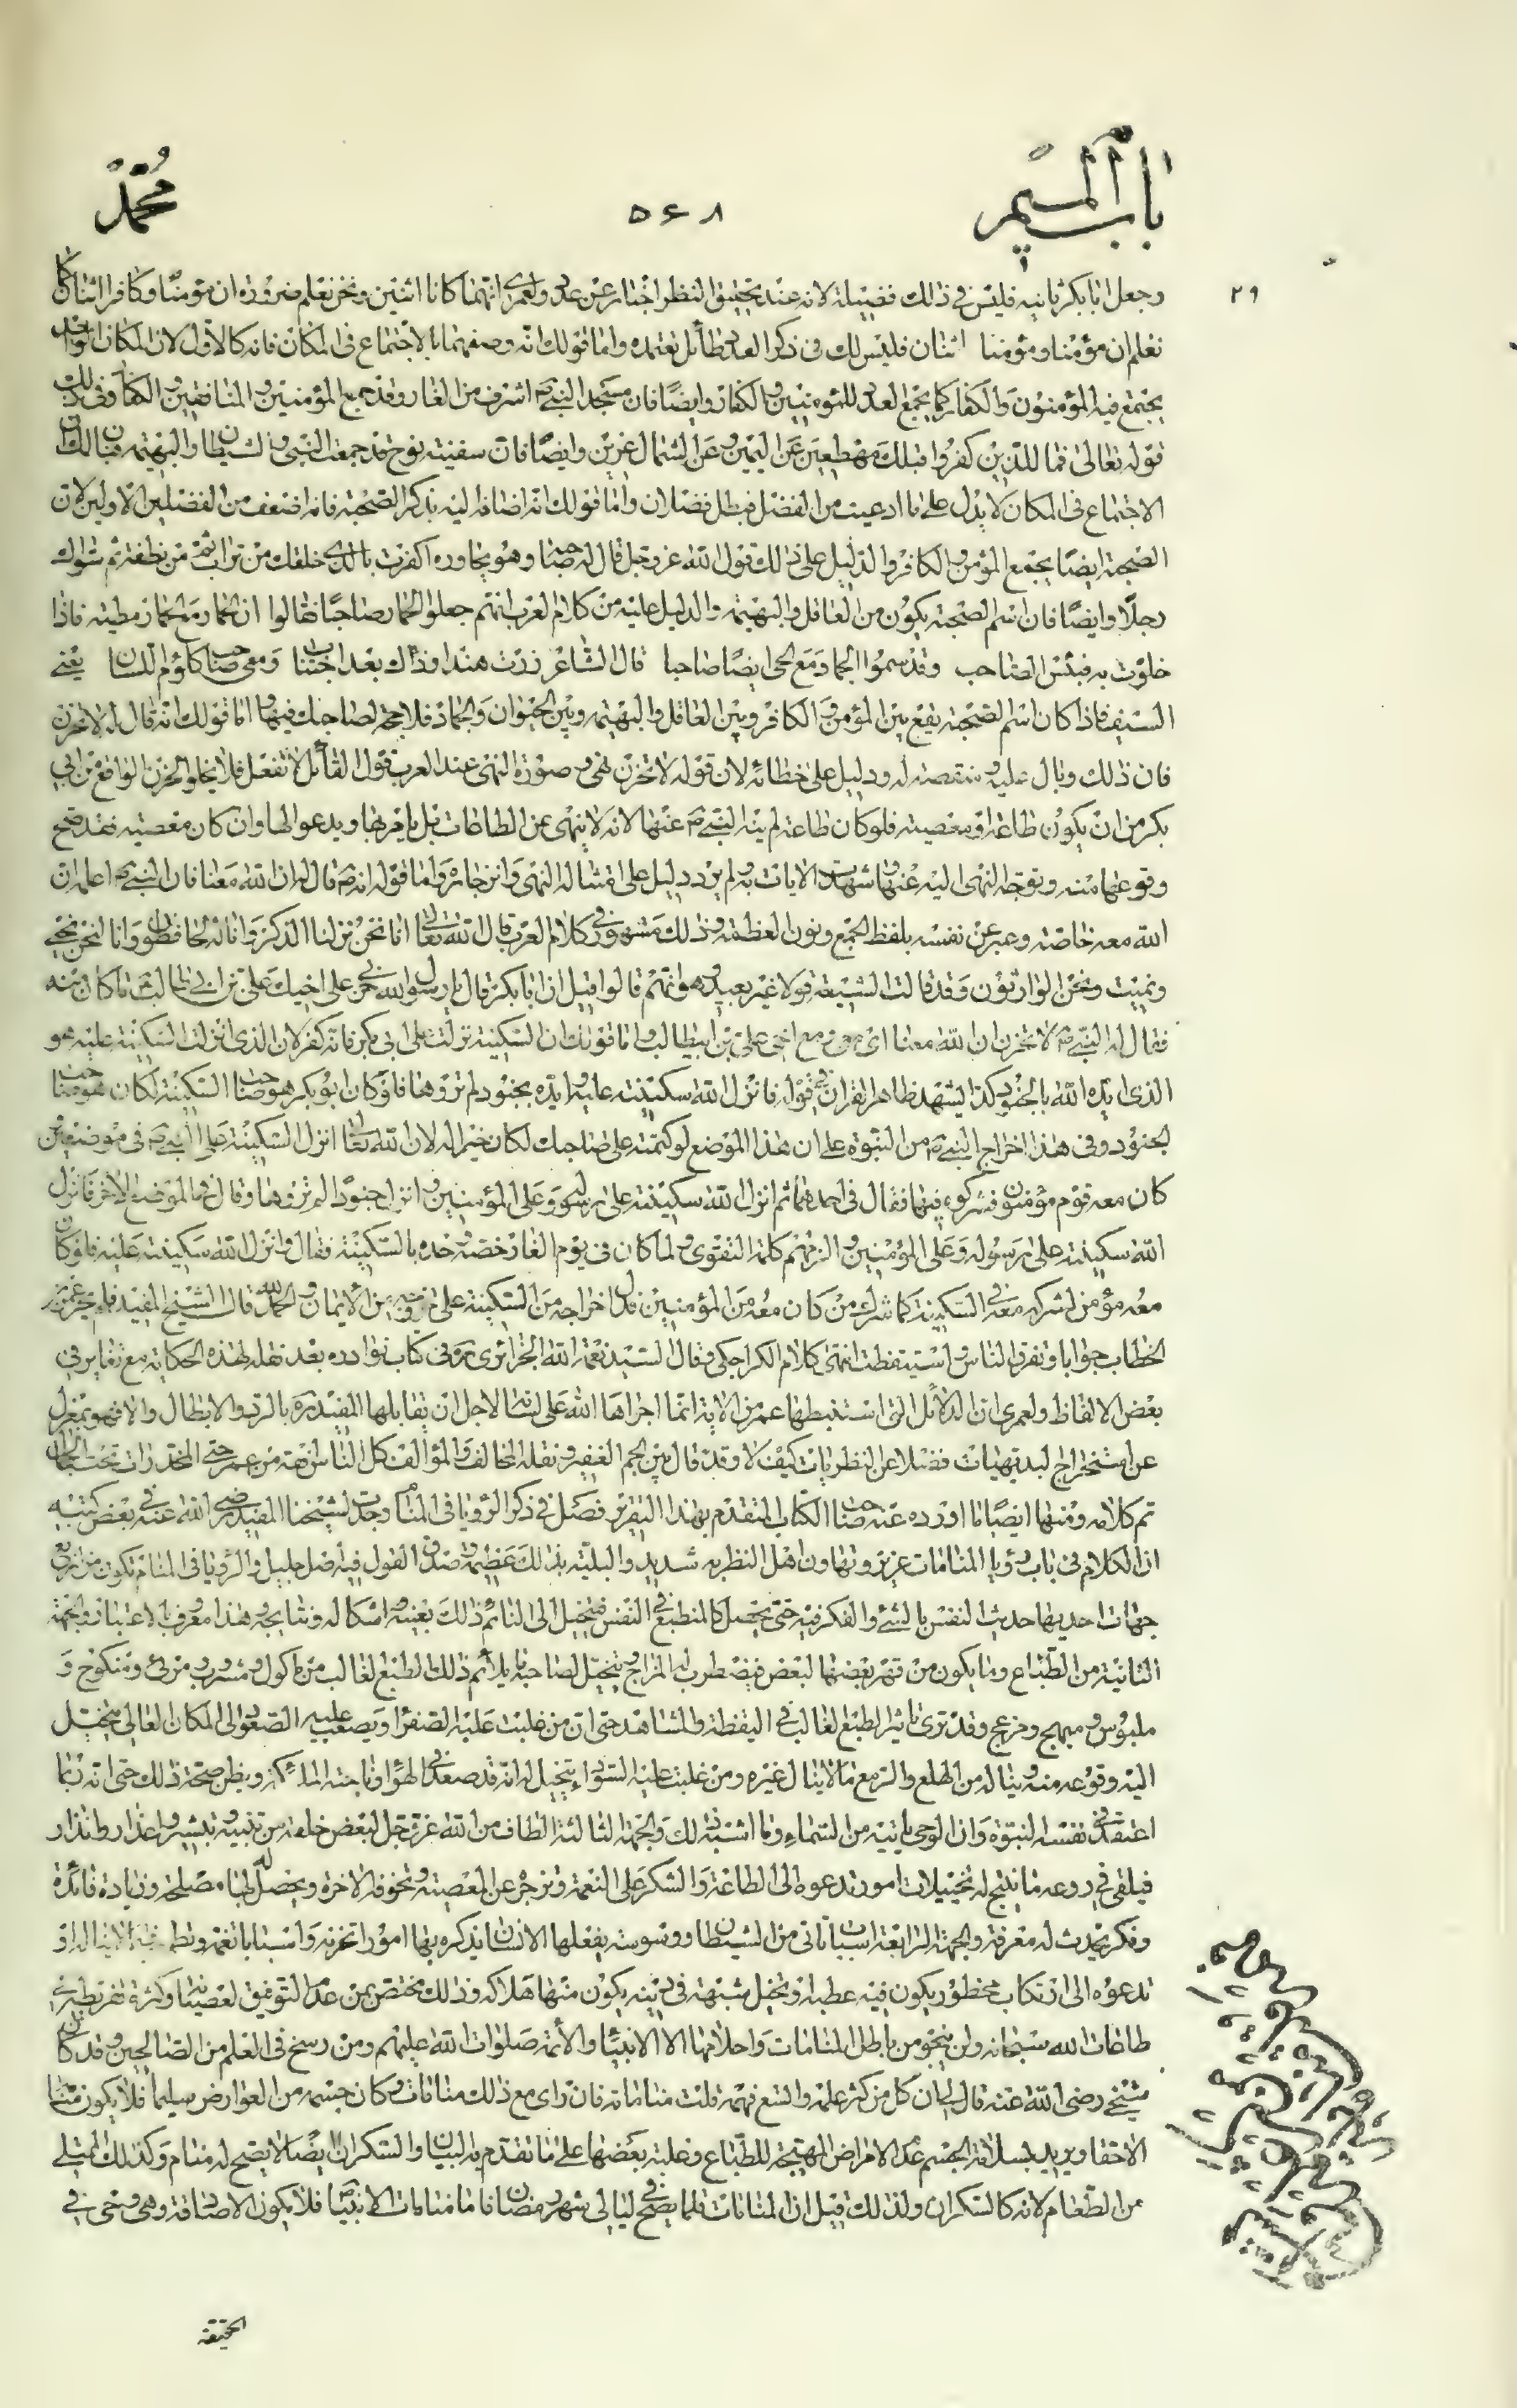 باب الميم
۵۶۸
محمد
۲۹
وجعل ابا بكر ثانيه فليس في ذلك فضيلة لانه عند تحقيق النظر اخبار عن عدد ولعمري انهما كانا اثنين ونحن نعلم ضرورة ان مؤمنا وكافرا اثنان كما
نعلم ان مؤمنا ومؤمنا اثنان فليس لك في ذكر العدد طائل تعتمده واما قولك انه وصفهما بالاجتماع في المكان فانه كالاول لان المكان الواحد
يجتمع فيه المؤمنون والكفار كما يجمع العدد للمؤمنين والكفار وايضا فان مسجد النبي ص اشرف من الغار وقد جمع المؤمنين والمنافقين والكفار وفي ذلك
قوله تعالى فما للذين كفروا قبلك مهطعين عن اليمين وعن الشمال عزين وايضا فان سفينة نوح قد جمعت النبي والشيطان والبهيمة فبان لك ان
الاجتماع في المكان لا يدل على ما ادعيت من الفضل فبطل فضلان واما قولك انه اضافه اليه بذكر الصحبة فانه اضعف من الفضلين الاولين لان
الصحبة ايضا يجمع المؤمن والكافر والدليل على ذلك قول الله عز وجل قال له صاحبه وهو يحاوره اكفرت بالذي خلقك من تراب ثم من نطفة ثم سواك
رجلا وايضا فان اسم الصحبة يكون من العاقل والبهيمة والدليل عليه من كلام العرب انهم جعلوا الحمار صاحبا فقالوا ان الحمار مع الحمار مطية فاذا
خلوت به فبئس الصاحب وقد سموا الجماد مع الحي ايضا صاحبا قال الشاعر زرت هندا وذاك بعد اجتناب ومعي صاحب كتوم اللسان يعني
السيف فاذا كان اسم الصحبة يقع بين المؤمن والكافر وبين العاقل والبهيمة وبين الحيوان والجماد فلا حجة لصاحبك فيها واما قولك انه قال له لا تحزن
فان ذلك وبال عليه ومنقصة له ودليل على خطائه لان قوله لا تحزن نهي وصورة النهي عند العرب قول القائل لا تفعل فلا يخلو الحزن الواقع من ابي
بكر من ان يكون طاعة او معصية فلو كان طاعة لم ينه النبي ص عنها لانه لا ينهى عن الطاعات بل يامر بها ويدعو لها وان كان معصية فقد صح
وقوعها منه وتوجه النهي اليه عنها وشهدت الايات به ولم يرد دليل على امتثاله النهي وانزجاره واما قوله انه ص قال له ان الله معنا فان النبي ص اعلم ان
الله معه خاصة وعبر عن نفسه بلفظ الجمع ونون العظمة وذلك مشهور في كلام العرب قال الله تعالى انا نحن نزلنا الذكر وانا له لحافظون وانا لنحن نحيي
ونميت ونحن الوارثون وقد قالت الشيعة قولا غير بعيد وهو انهم قالوا قيل ان ابا بكر قال يا رسول الله حزني على اخيك علي بن ابي طالب ما كان منه
فقال له النبي ص لا تحزن ان الله معنا اي معي ومع اخي علي بن ابيطالب واما قولك ان السكينة نزلت على ابي بكر فانه كفر لان الذي انزلت السكينة عليه هو
الذي ايده الله بالجنود كذا يشهد ظاهر القران في قوله فانزل الله سكينته عليه وايده بجنود لم تروها فلو كان ابو بكر هو صاحب السكينة لكان هو صاحب
الجنود وفي هذا اخراج النبي ص من النبوة على ان هذا الموضع لو كتمته على صاحبك لكان خيرا له لان الله تعالى انزل السكينة على النبي ص في موضعين
كان معه قوم مؤمنون فشركوه فيها فقال في احدهما ثم انزل الله سكينته على رسوله وعلى المؤمنين وانزل جنودا لم تروها وقال في الموضع الاخر فانزل
الله سكينته على رسوله وعلى المؤمنين والزمهم كلمة التقوى ولما كان في يوم الغار خصه وحده بالسكينة فقال فانزل الله سكينته عليه فلو كان
معه مؤمن لشركه معه في السكينة كما شرك من كان معه من المؤمنين فدل اخراجه من السكينة على خروجه من الايمان والحمد لله قال الشيخ المفيد فلم يحر عمر بن
الخطاب جوابا وتفرق الناس واستيقظت انتهى كلام الكراجكي وقال السيد نعمة الله الجزائري ره في كتاب نوادره بعد نقله لهذه الحكاية مع تغاير في
بعض الالفاظ ولعمري ان الدلائل التي استنبطها عمر من الاية انما اجراها الله على لسانه لاجل ان يقابلها المفيد ره بالرد والابطال والا فهو بمعزل
عن استخراج البديهيات فضلا عن النظريات كيف لا وقد قال بين الجم الغفير ونقله المخالف والمؤالف كل الناس افقه من عمر حتى المخدرات تحت الحجال
تم كلامه ومنها ايضا ما اورده عنه صاحب الكتاب المتقدم بهذا التقرير فصل في ذكر الرؤيا في المنام وجدت لشيخنا المفيد رضي الله عنه في بعض كتبه
ان الكلام في باب رؤيا المنامات عزيز وتهاون اهل النظر به شديد والبلية بذلك عظيمة وصدق القول فيه اصل جليل والرؤيا في المنام تكون من اربع
جهات احديها حديث النفس بالشئ والفكر فيه حتى يحصل كالمنطبع في النفس فيخيل الى النائم ذلك بعينه واشكاله ونتايجه وهذا معروف بالاعتبار والجهة
الثانية من الطباع وما يكون من قهر بعضها لبعض فيضطرب له المزاج ويتخيل لصاحبه ما يلائم ذلك الطبع الغالب من ماكول ومشروب ومرئ ومنكوح و
ملبوس ومبهج ومزعج وقد ترى تاثير الطبع الغالب في اليقظة والشاهد حتى ان من غلبت عليه الصفرا ويصعب عليه الصعود الى المكان العالي يتخيل
اليه وقوعه منه ويناله من الهلع والزمع ما لا ينال غيره ومن غلبت عليه السوداء يتخيل له انه قد صعد في الهواء وناجته الملائكة ويظن صحة ذلك حتى انه ربما
اعتقد في نفسه النبوة وان الوحي ياتيه من السماء وما اشبه ذلك والجهة الثالثة الطاف من الله عز وجل لبعض خلقه من تنبيه وتبشير واعذار وانذار
فيلقي في روعه ما ينتج له تخييلات امور تدعوه الى الطاعة والشكر على النعمة وتزجر عن المعصية وتخوفه الاخرة ويحصل له بها مصلحة وزيادة فائدة
وفكر يحدث له معرفة والجهة الرابعة اسباب تاتي من الشيطان ووسوسة يفعلها الانسان يذكره بها امورا تحزنه واسبابا تغمه وتطمعه فيما لا يناله او
تدعوه الى ارتكاب محظور يكون فيه عطبه او تخيل شبهة في دينه يكون منها هلاكه وذلك مختص بمن عدم التوفيق لعصيانه وكثرة تفريطه في
طاعات الله سبحانه ولن ينجو من باطل المنامات واحلامها الا الانبياء والائمة صلوات الله عليهم ومن رسخ في العلم من الصالحين وقد كان
شيخي رضي الله عنه قال لي ان كل من كثر علمه واتسع فهمه قلت مناماته فان راى مع ذلك مناما وكان جسمه من العوارض سليما فلا يكون منامه
الا حقا ويريد بسلامة الجسم عدم الامراض المهيجة للطباع وغلبة بعضها على ما تقدم به البيان والسكران ايضا لا يصح له منام وكذلك الممتلي
من الطعام لانه كالسكران ولذلك قيل ان المنامات قلما يصح في ليالي شهر رمضان فاما منامات الانبياء فلا يكون الا صادقة وهي وحي في
الحقيقة